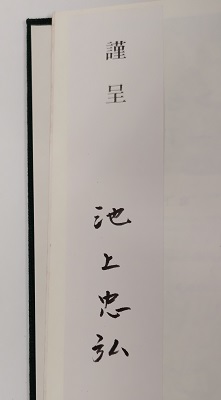 謹呈
池上忠弘